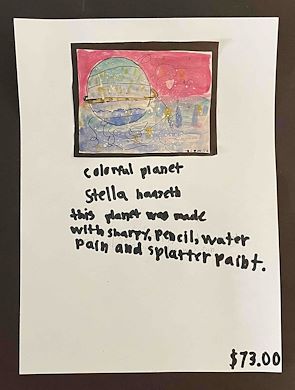 colorful planet
Stella hanseth
this planet was made
with sharpy, pencil, water
pain and splatter paint.
$73.00